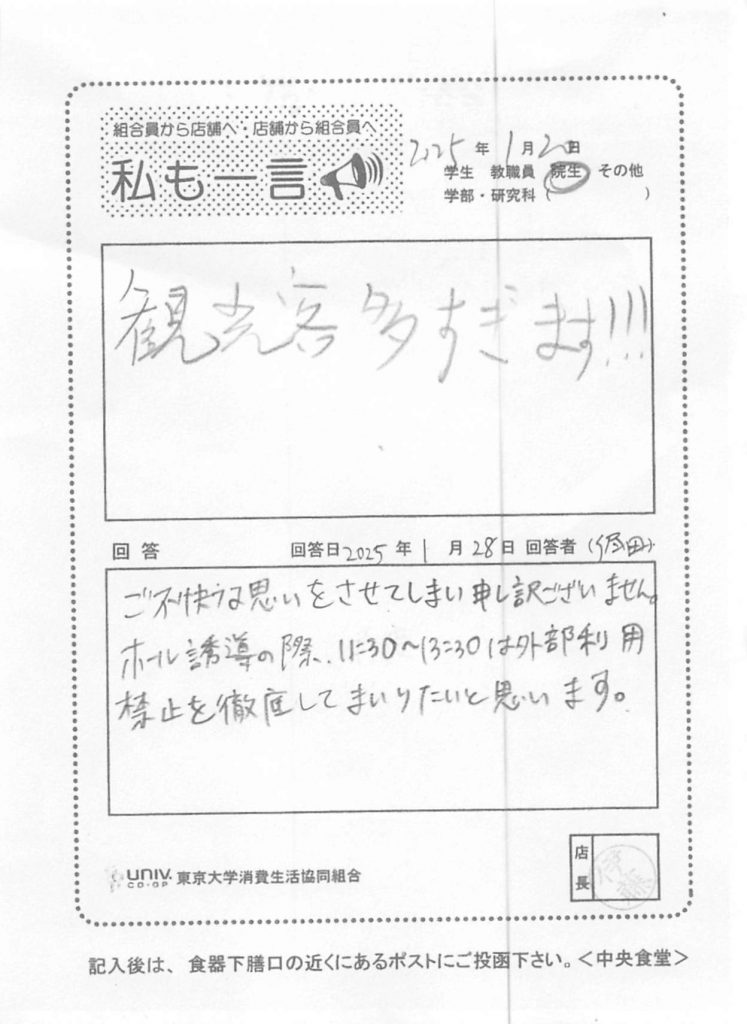 組合員から店舗へ・店舗から組合員へ
私も一言
2025年1月20日
学生 教職員 院生 その他
学部・研究科（　　　　　）
観光客多すぎます!!!
回答 回答日2025年1月28日 回答者（　　田）
ご不快な思いをさせてしまい申し訳ございません。
ホール誘導の際、11:30〜13:30は外部利用
禁止を徹底してまいりたいと思います。
UNIV. CO-OP 東京大学消費生活協同組合
店長
記入後は、食器下膳口の近くにあるポストにご投函下さい。＜中央食堂＞